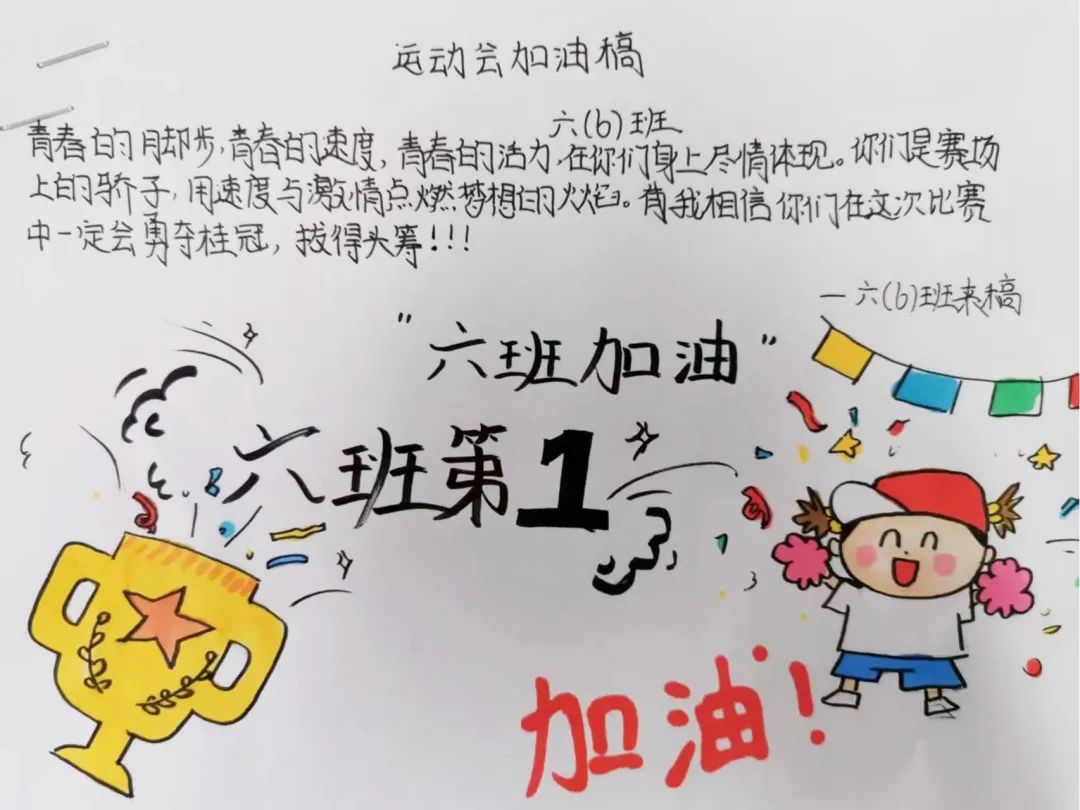 运动会加油稿
六(6)班
青春的脚步,青春的速度,青春的活力,在你们身上尽情体现。你们是赛场
上的骄子,用速度与激情点燃梦想的火焰。我相信你们在这次比赛
中一定会勇夺桂冠,拔得头筹!!!
—六(6)班来稿
"六班加油"
六班第1
加油!